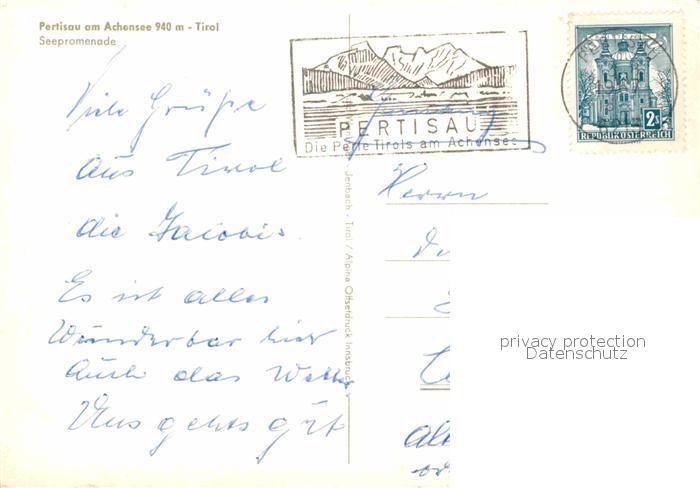 Pertisau am Achensee 940 m - Tirol
Seepromenade
Viele Grüße
aus Tirol
die Jacobis.
Es ist alles
Wunderbar hier
Auch das Wetter
Uns gehts gut
PERTISAU
Die Perle Tirols am Achensee
2S
REPUBLIK ÖSTERREICH
Jenbach - Tirol / Alpina Offsetdruck Innsbruck
Herrn
privacy protection
Datenschutz